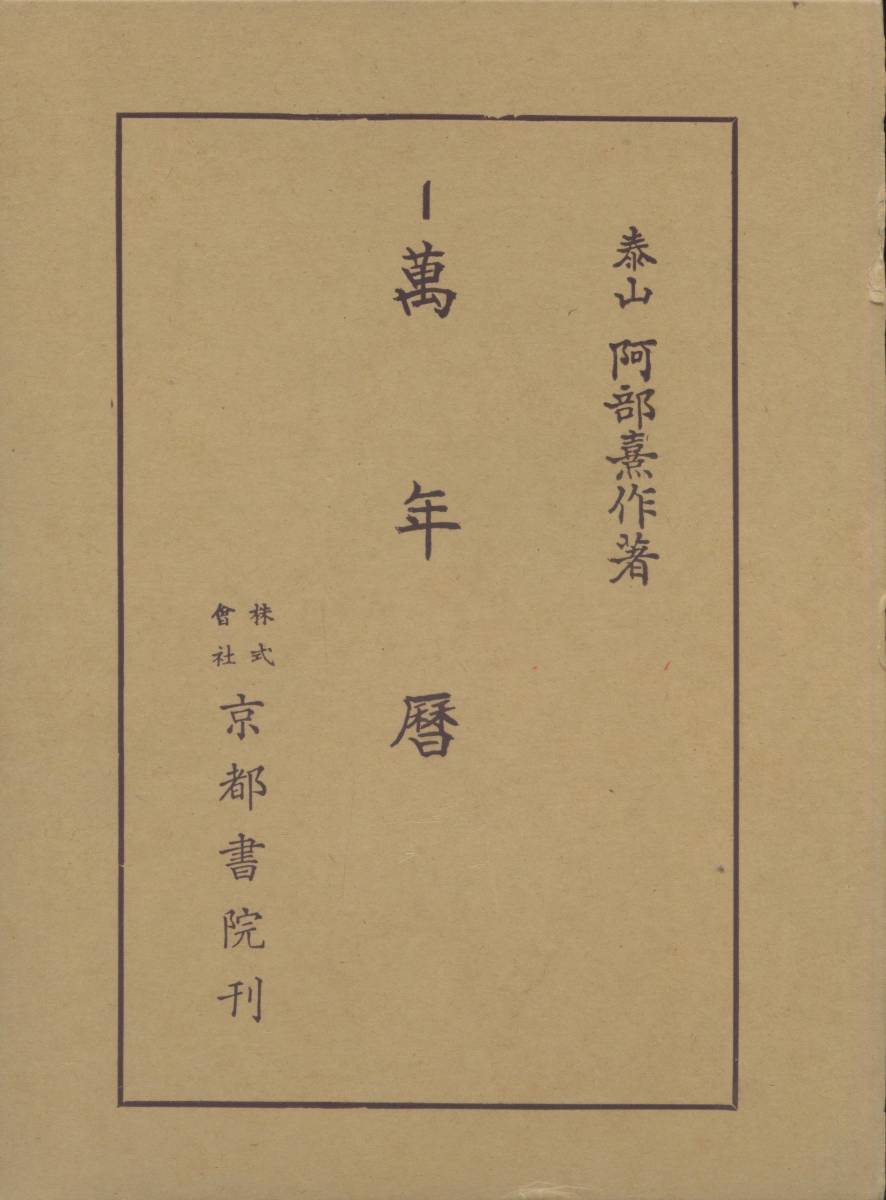 泰山 阿部熹作著
一萬年暦
株式會社 京都書院刊